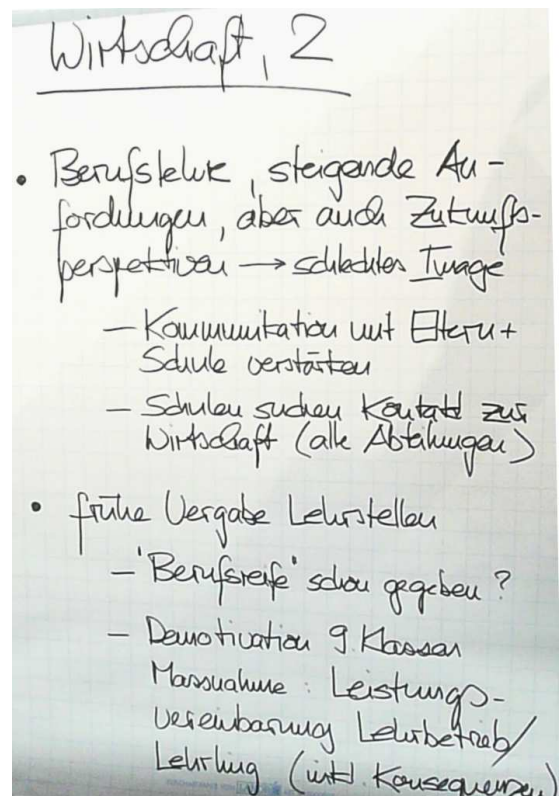 Wirtschaft, 2
• Berufslehre, steigende An-
forderungen, aber auch Zukunfts-
perspektiven → schlechtes Image
– Kommunikation mit Eltern +
Schule verstärken
– Schulen suchen Kontakt zur
Wirtschaft (alle Abteilungen)
• frühe Vergabe Lehrstellen
– 'Berufsreife' schon gegeben?
– Demotivation 9. Klassen
Massnahme: Leistungs-
vereinbarung Lehrbetrieb/
Lehrling (inkl. Konsequenzen)